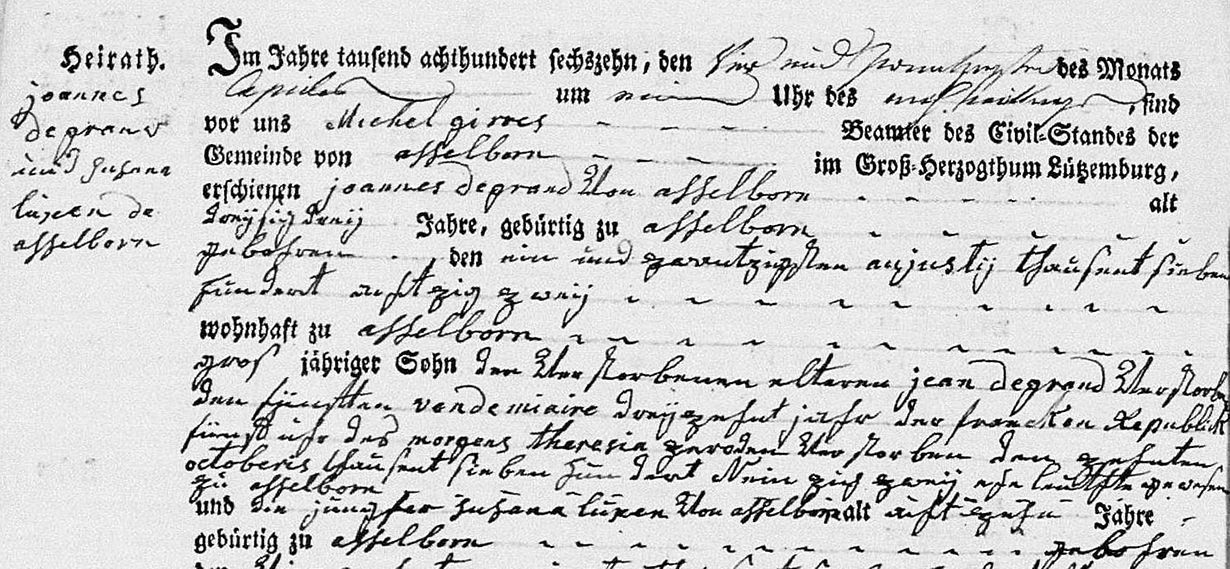 Heirath.
joannes
degrand
und susana
lüxen de
asselborn
Im Jahre tausend achthundert sechszehn, den vier und des Monats
um Uhr des , sind
vor uns Michel girres Beamter des Civil-Standes der
Gemeinde von asselborn im Groß-Herzogthum Lützemburg,
erschienen joannes degrand Von asselborn alt
dreysig dreij Jahre, gebürtig zu asselborn
gebohren , den ein und zwantzigsten augustij thausent sieben
hundert achtzig zweij
wohnhaft zu asselborn
gros jähriger Sohn der Verstorbenen elteren jean degrand Verstorben
den fünften vendemiaire dreyzehnt jahr der francken Republick
fünf uhr des morgens theresia geroden Verstorben den zehnten
octoberis thausent sieben hundert Neinzig zweij gewesen
zu asselborn
und die jungfer susana lüxen Von asselborn alt achtzehn Jahre
gebürtig zu asselborn gebohren